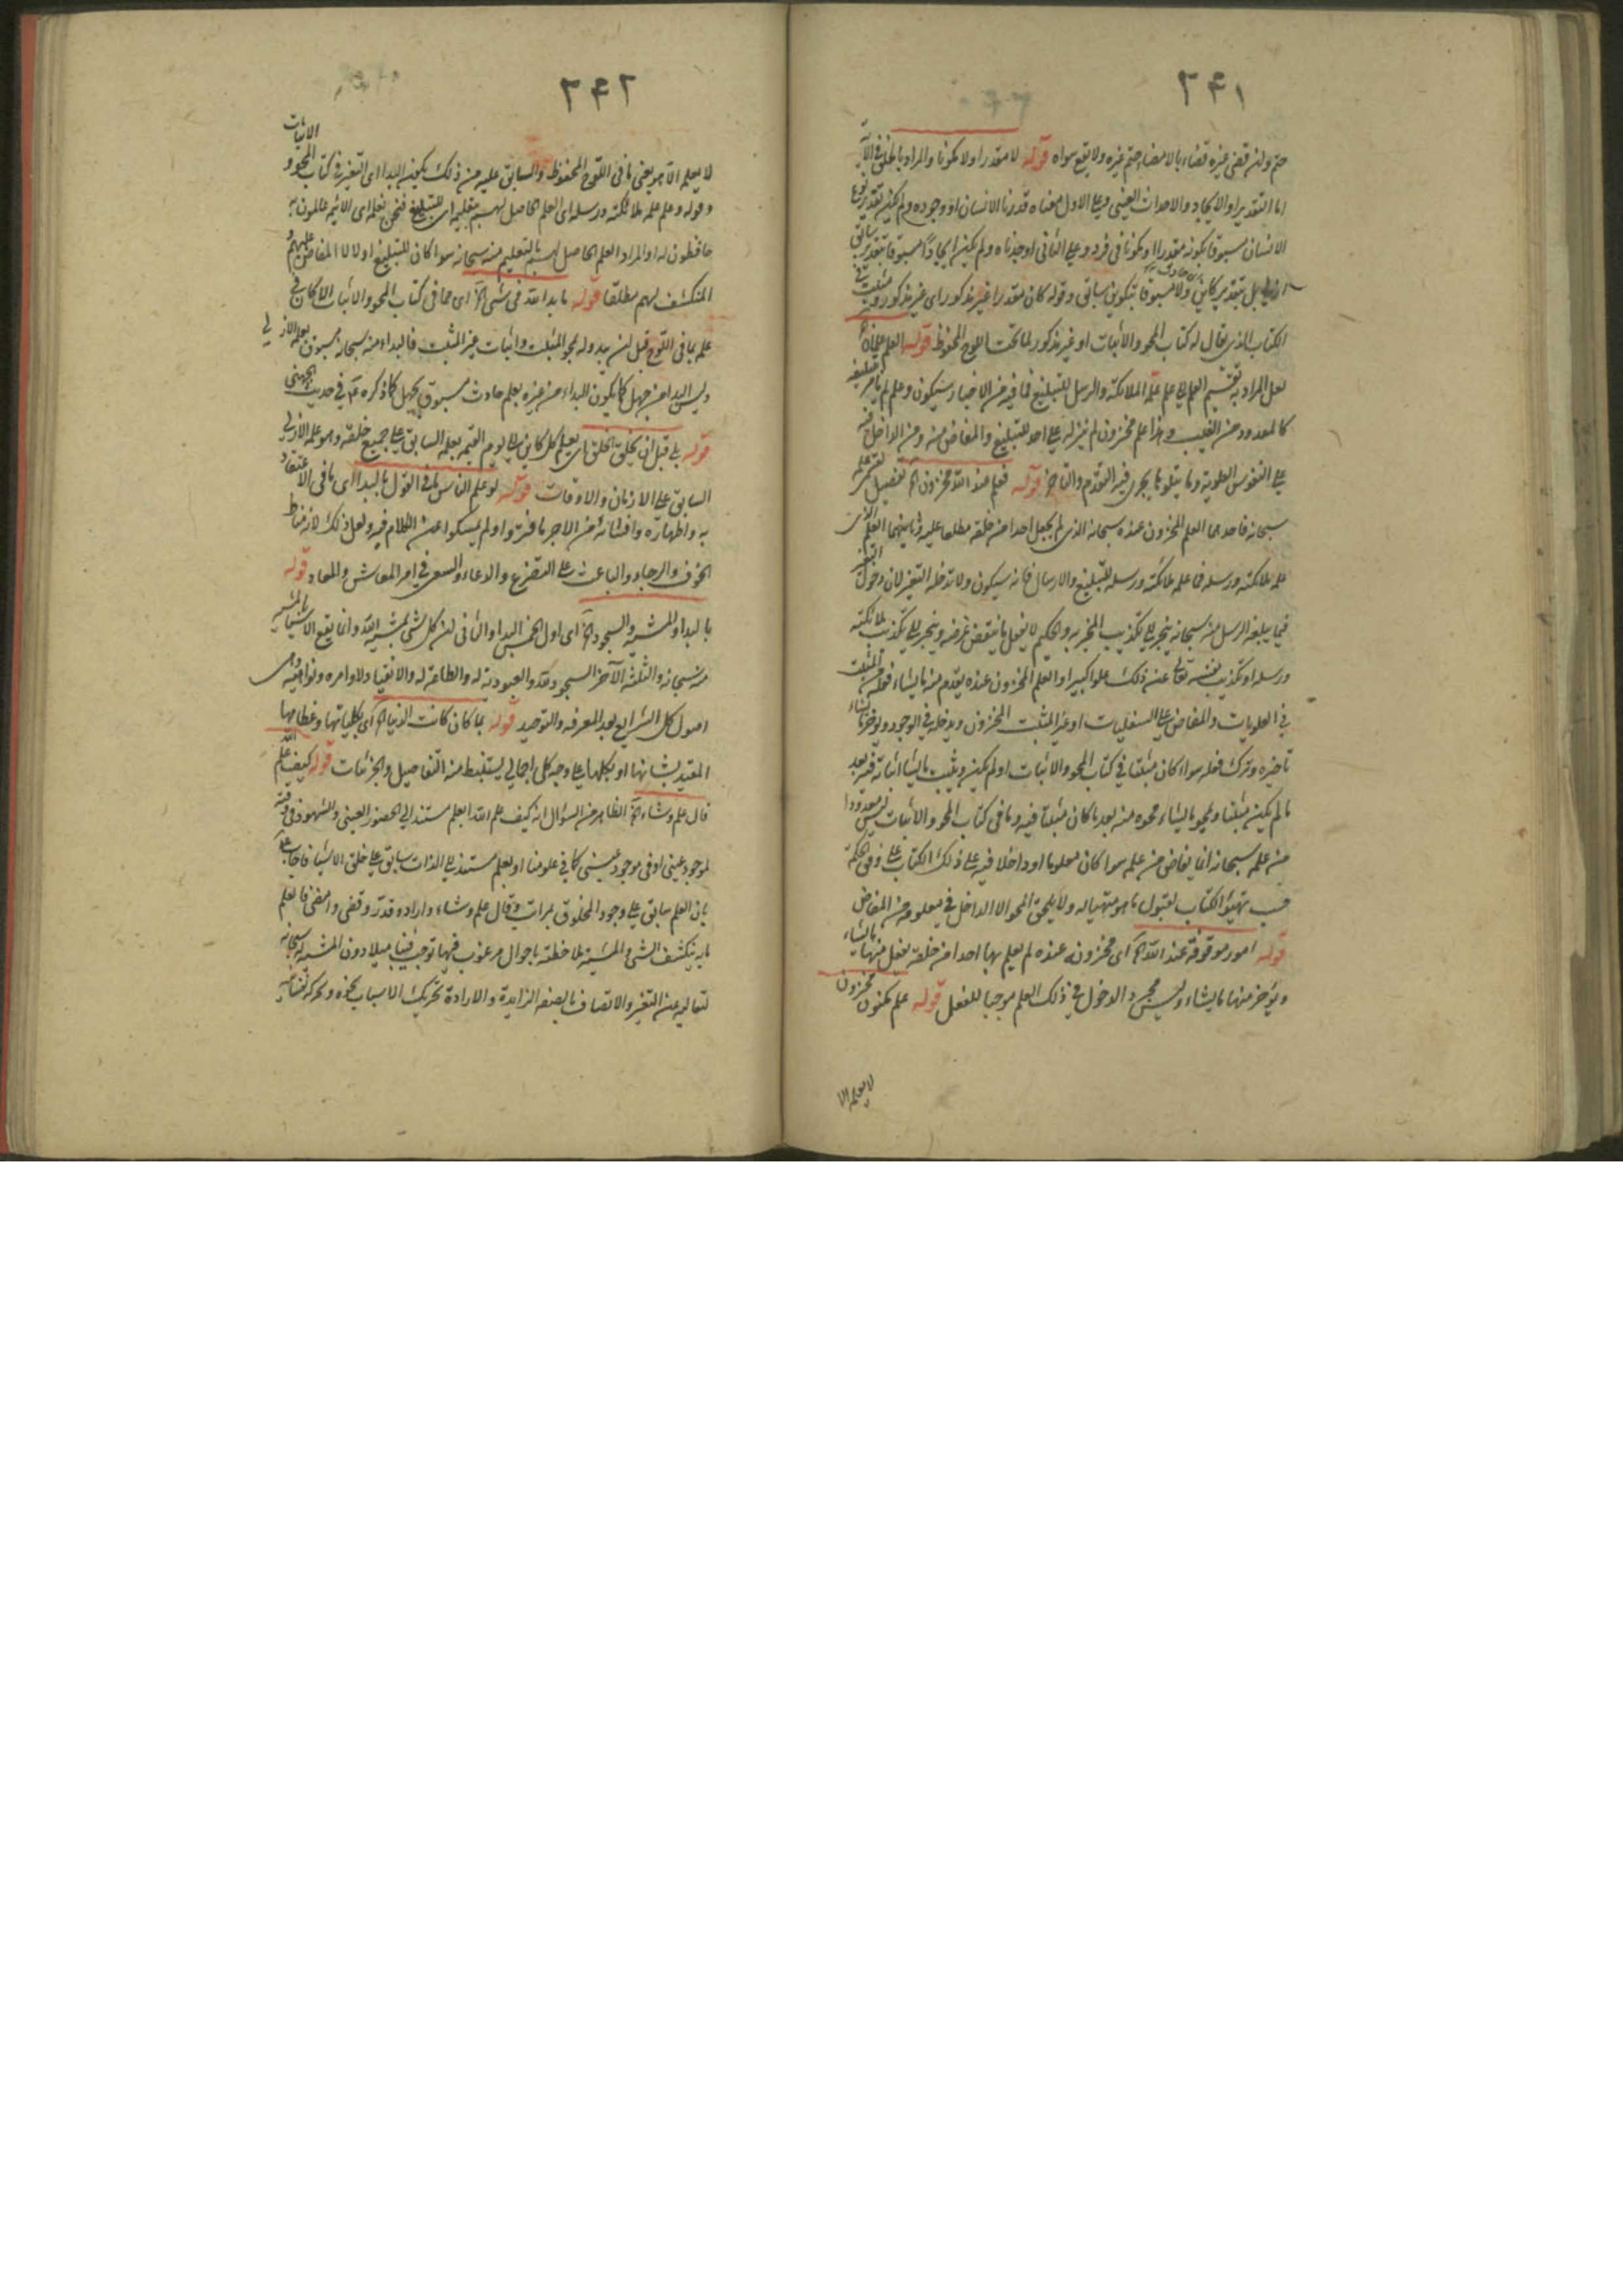 ٢٤١
حتم ولن قضى غيره قضاء بالامضاء حتم غيره ولا يقع سواه قوله لا مقدرا ولا مكونا والمراد بالخلق في الآية
اما التقدير او الايجاد والاحداث العيني وعلى الاول معناه قدرنا الانسان او وجوده ولم يكن تقدير نوع
الانسان مسبوقا بكونه مقدرا او مكونا في فرد وعلى الثاني اوجدناه ولم يكن ايجادا مسبوقا بتقدير سابق
ازلي بل بتقدير كاين ولا مسبوقا بتكوين سابق وقوله كان مقدرا غير مذكور اى غير مذكور ومثبت في
الكتاب الذي يقال له كتاب المحو والاثبات او غير مذكور لما تحت اللوح المحفوظ قوله العلم علمان
لعل المراد به تقسيم العلم الى علم علمه الملائكة والرسل للتبليغ فما فيه من الاخبار سيكون وعلم لم يأمر بتبليغه
كالمعدود من الغيب وهذا علم مخزون لم ينزله على احد للتبليغ والمفاض منه ومن الداخل فيه
على النفوس العلوية وما يتلوها يجرى فيه التقدم والتاخر قوله فعلم عند الله مخزون الخ تفصيل لقسمى علمه
سبحانه فاحدهما العلم المخزون عنده سبحانه الذي لم يجعل احدا من خلقه مطلعا عليه وثانيهما العلم الذى
علمه ملائكته ورسله فما علمه ملائكته ورسله للتبليغ والارسال فانه سيكون ولا تدخله التغير لان دخول التغير
فيما يبلغه الرسل منه سبحانه ينجر الى تكذيب المخبر به والحكيم لا يفعل ما ينقض غرضه وينجر الى تكذيب ملائكته
ورسله او تكذيب نفسه تعالى عن ذلك علوا كبيرا والعلم المخزون عنده يقدم منه ما يشاء فعله من المثبت
في العلويات والمفاض على السفليات او غير المثبت المخزون ويدخله في الوجود ويؤخر ما يشاء
تاخيره وترك فعله سواء كان مثبتا في كتاب المحو والاثبات او لم يكن ويثبت ما يشاء اثباته فيه بعد
ما لم يكن مثبتا ويمحو ما يشاء محوه منه بعد ما كان مثبتا فيه وما في كتاب المحو والاثبات ليس معدودا
من علمه سبحانه انما يفاض من علم سواء كان معلوما او داخلا فيه على ذلك الكتاب على وفق الحكمة
حسب تهيئو الكتاب لقبول ما هو متهيا له ولا يلحق المحو الا الداخل في معلومه من المفاض
قوله امور موقوفة عند الله الخ اى مخزونه عنده لم يعلم بها احدا من خلقه يفعل منها ما يشاء
ويؤخر منها ما يشاء وليس مجرد الدخول في ذلك العلم موجبا للفعل قوله علم مكنون مخزون
لا يعلمه الا
٢٤٢
لا يعلمه الا هو يعنى ما في اللوح المحفوظ والسابق عليه من ذلك يكون البداء اى التغير في كتاب المحو و الاثبات
وقوله وعلم علمه ملائكته ورسله اى العلم الحاصل لهم بتعليم اى للتبليغ فنحن نعلمه اى الائمة عالمون به
حافظون له او المراد العلم الحاصل لهم بالتعليم منه سبحانه سواء كان للتبليغ اولا لا المفاض عليهم و
المنكشف لهم مطلقا قوله ما بدا لله في شئ الخ اى مما في كتاب المحو والاثبات الا كان في
علمه بما في اللوح قبل ان يبدو له محو المثبت واثبات غير المثبت فالبداء منه سبحانه مسبوق بعلمه الازلي
وليس البدا من جهل كما يكون البداء من غيره بعلم حادث مسبوق بجهل كما ذكره في حديث الجهني
قوله بلى قبل ان يخلق الخلق اى يعلم كل كاين الى يوم القيمه بعلمه السابق على جميع خلقه وهو علمه الازلي
السابق على الازمان والاوقات قوله لو علم الناس ما في القول بالبداء اى ما في الاعتقاد
به واظهاره وافشائه من الاجر ما فتروا ولم يمسكوا عن الكلام فيه ولعل ذلك لانه مناط
الخوف والرجاء والباعث على التضرع والدعاء والسعى في امر المعاش والمعاد قوله
بالبداء والمشية والسجود الخ اى اول الخمس البدا والثاني ان كل شئ بمشية الله وانما يقع الاشياء بالمشية
منه سبحانه والثلثة الآخر السجود لله والعبودية له والطاعة له والانقياد لاوامره ونواهيه وهى
اصول كل الشرايع بعد المعرفه والتوحيد قوله بما كان كانت الدنيا الخ اى بكلياتها وعظامها
المقيد بشانها او بكلها على وجه كل اجمالي يستنبط منه التفاصيل والجزئيات قوله كيف علم الله
قال علم وشاء الخ الظاهر من السؤال انه كيف علم الله ابعلم مستند الى الحضور العيني والشهود في وقته
لموجود عيني او في موجود عيني كما في علومنا او بعلم مستند الى الذات سابق على خلق الاشياء فاجاب
بان العلم سابق على وجود المخلوق بمرات وقال علم وشاء واراد وقدر وقضى وامضى فالعلم
ما به ينكشف الشئ والمشية ملاحظته باحوال مرغوب فيها توجب فينا ميلا دون المشية له سبحانه
لتعاليه عن التغير والاتصاف بالصفه الزايدة والارادة تحريك الاسباب نحوه وبحركة نفسانيه